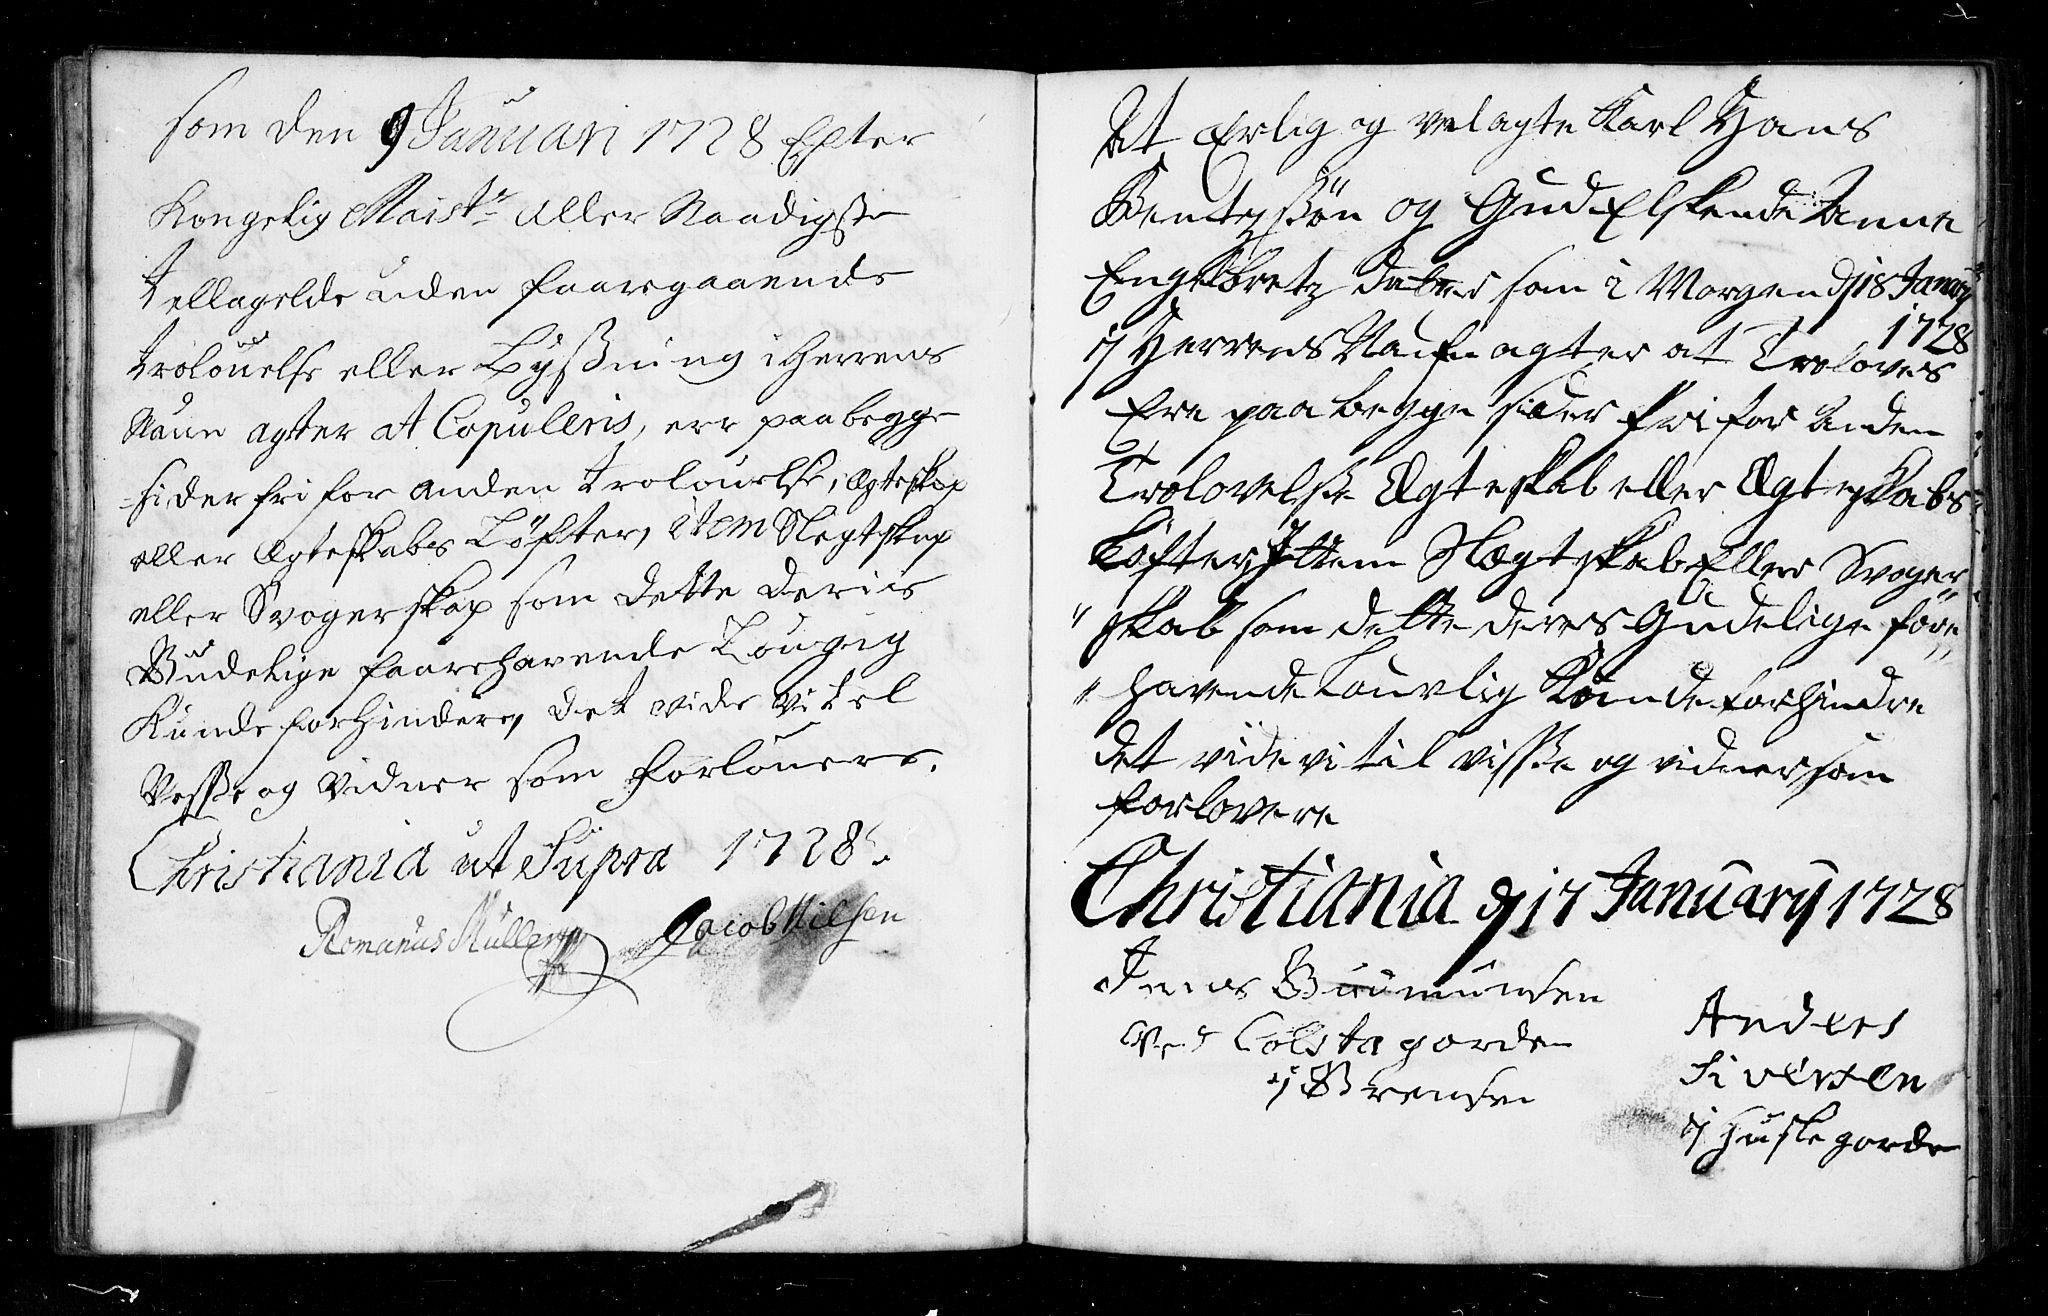 som den 9 Januari 1728 Epter
Kongelig Maistr. aller Naadigste
tellagelde uden faaregaaende
trolouelse eller Lysning i Herrens
Naun agter at Copuleris, err paa begge
sider fri for anden trolouelse, Ægteskap
eller Ægteskabs Løfter, item Slegtskap
eller Svogerskap som dette deris
Gudelige faarehavende Lougig
Kunde forhindere, det vide vi tel
Vesse og Vidner som forlouere.
Christiania ut Supra 1728.
Romanus Müller Jacob Nilsen
At Erlig og velagte Karl Hans
Bentzsøn og Gud Elskende Anne
Engelbretz dater som i Morgen d 18 Januarij
1728
ij Herrens Naufn agter at Troloves
Ere paa begge sider fri for anden
Trolovelse Ægteskab eller Ægteskabs
Løfter, Ittem Slægtskab Eller Svoger
skab som dette deres Gudelige före
havende Louvlig Kunde forhindre
det vide vi til visse og vidner som
forlovere
Christiania d 17 January 1728
Jens Gudmunsen
ved Colsta gorden
ij Grensen
Anders
Siversen
ij Huske gorden